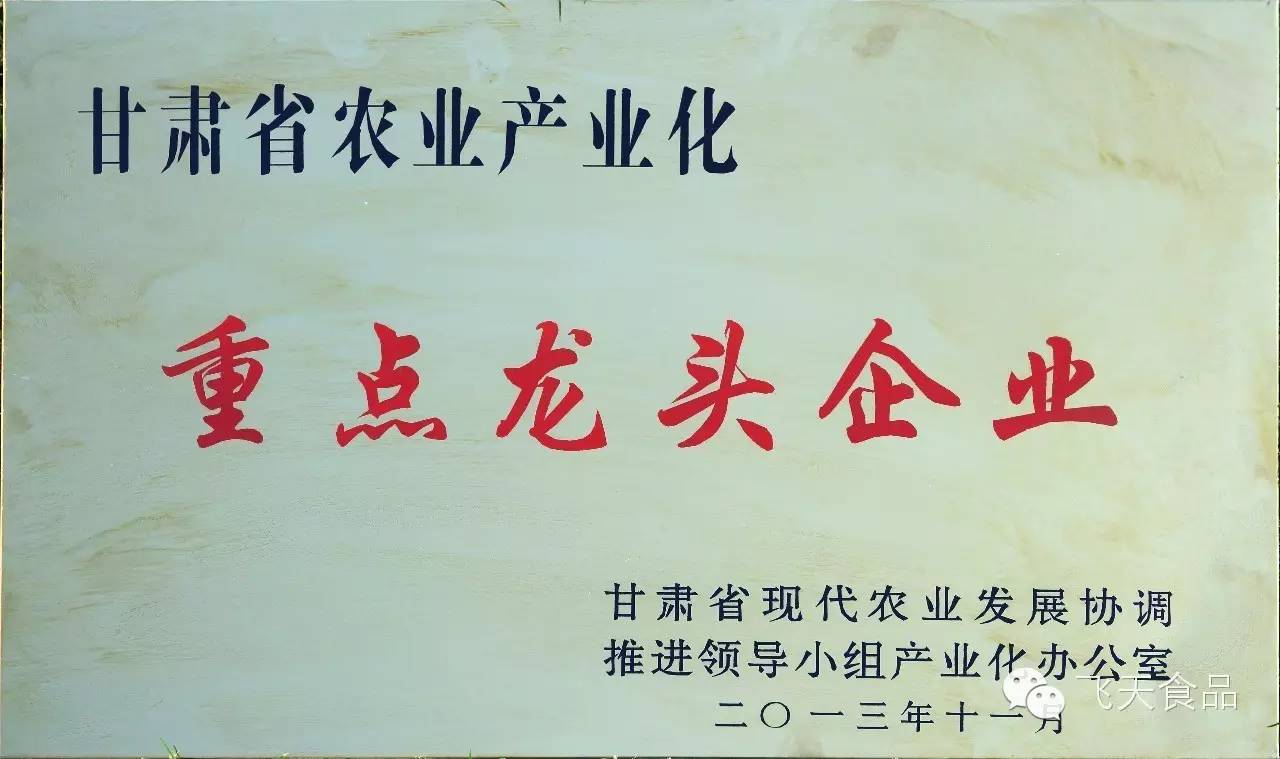 甘肃省农业产业化
重点龙头企业
甘肃省现代农业发展协调
推进领导小组产业化办公室
二〇一三年十一月
飞天食品